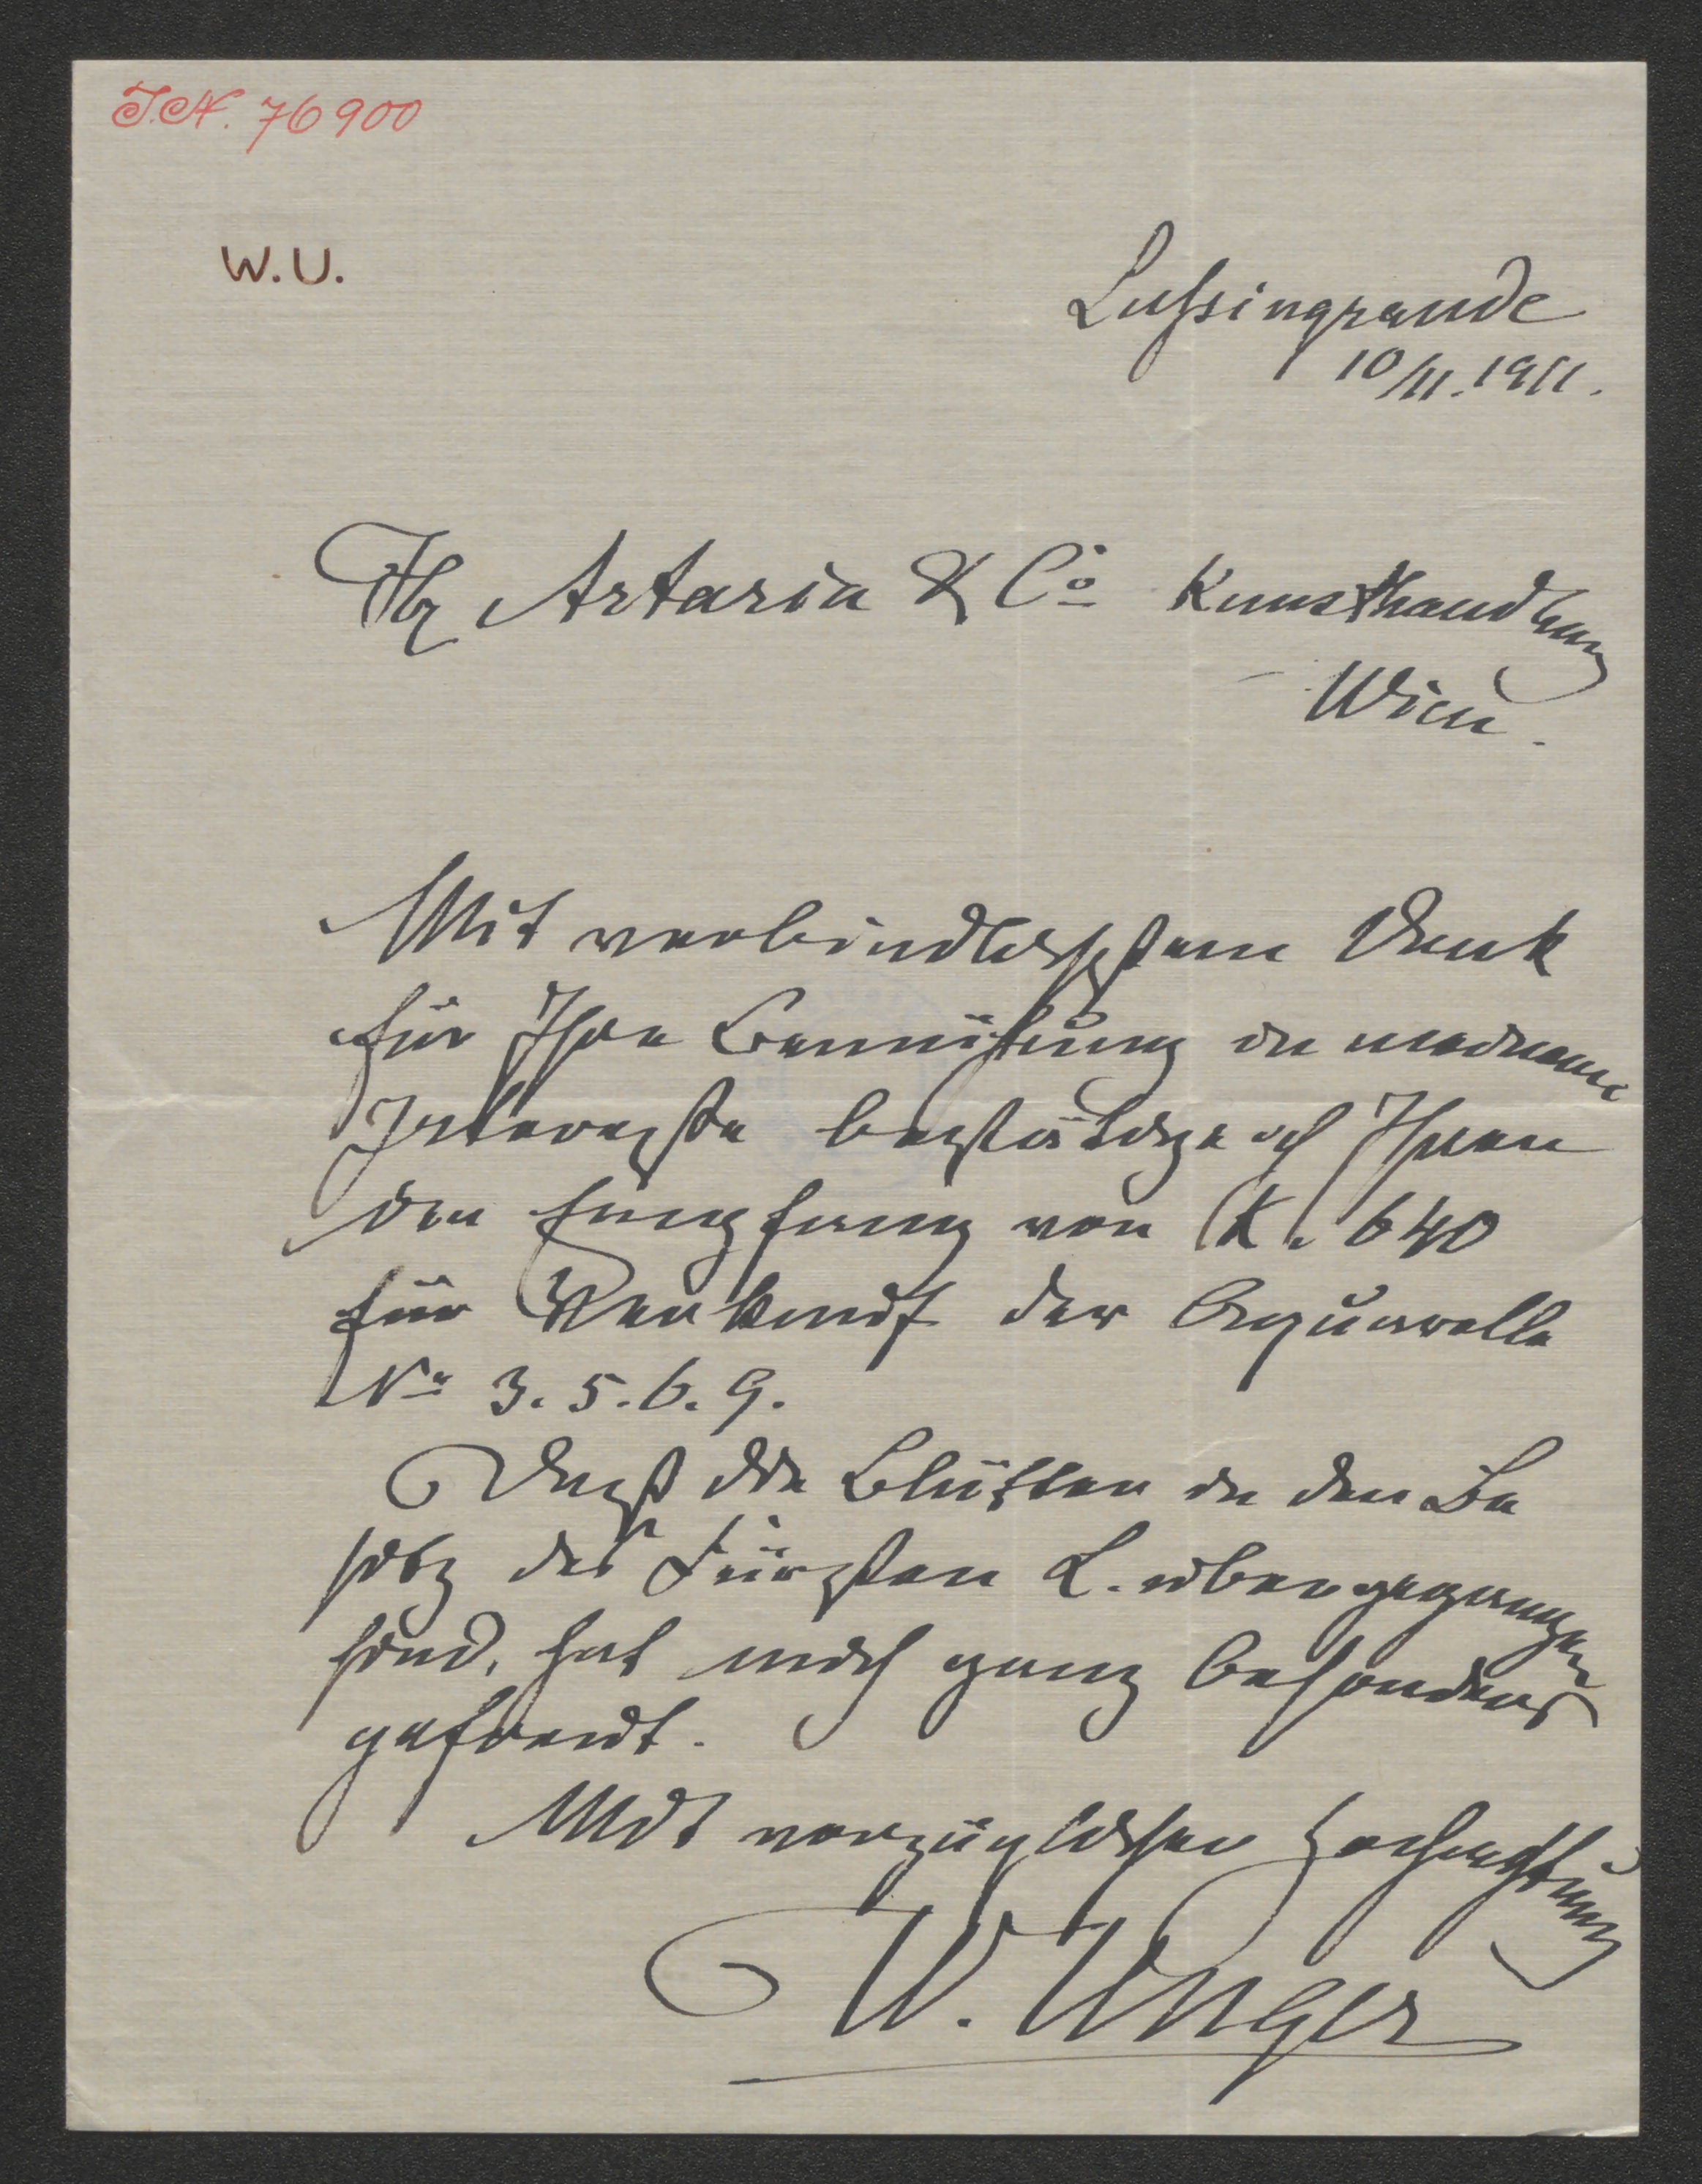 J.N. 76900
W.U.
Lussingrande
10/11. 1911.
Artaria & Co Kunsthandlung
Wien.
Mit verbindlichstem Dank
für Ihre Bemühung in meinem
Interesse bestätige ich Ihnen
den Empfang von K. 640
für Verkauf der Aquarelle
No 3. 5. 6. 9.
Dass die Blätter in den Be
sitz des Fürsten L. übergegangen
sind, hat mich ganz besonders
gefreut.
Mit vorzüglicher Hochachtung
W. Unger